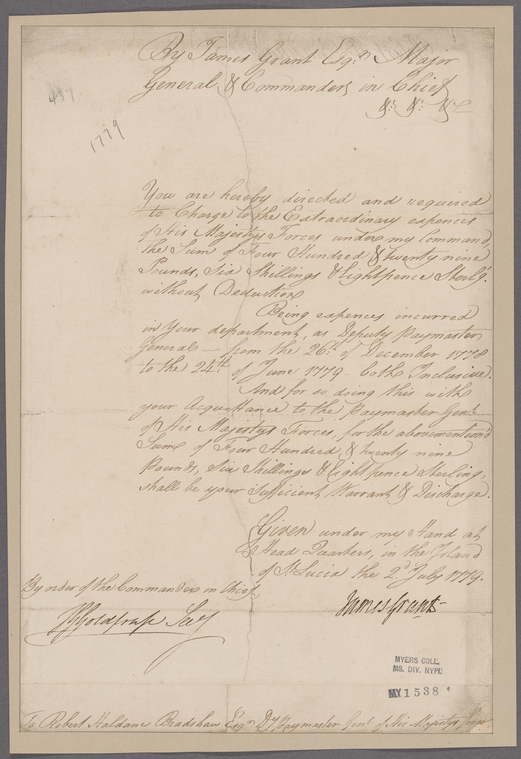 By James Grant Esqr. Major
General & Commander in Chief
&c. &c. &c
497.
1779
You are hereby directed and required
to Charge to the Extraordinary expences
of His Majestys Forces under my Command,
the Sum of Four Hundred & twenty nine
Pounds, Six Shillings & Eightpence Sterlg.
without Deduction
Being expences incurred
in Your department, as Deputy Paymaster
General — from the 26th. of December 1778
to the 24th. of June 1779 both Inclusive.
And for so doing this with
your Acquittance to the Paymaster Genl.
of His Majestys Forces, for the abovemention'd
Sum of Four Hundred & twenty nine
Pounds, Six Shillings & Eightpence Sterling,
shall be your Sufficient Warrant & Discharge.
Given under my Hand at
Head Quarters, in the Island
of St. Lucia the 2d. July 1779.
By order of the Commander in Chief
James Grant
Goldfrap Secy
MYERS COLL.
MS. DIV. NYPL
MY 1538
To Robert Haldane Bradshaw Esqr. Dy. Paymaster Genl. of His Majestys